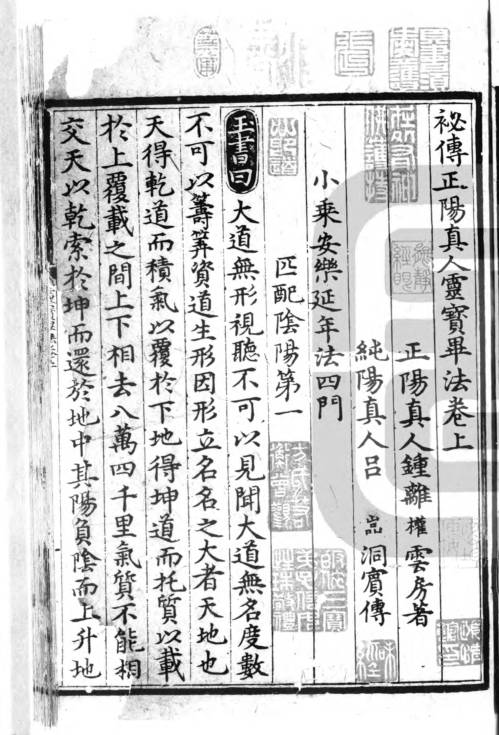 祕傳正陽真人靈寶畢法卷上
正陽真人鍾離權雲房著
純陽真人呂嵓洞賓傳
小乘安樂延年法四門
匹配陰陽第一
玉書曰大道無形視聽不可以見聞大道無名度數
不可以籌筭資道生形因形立名名之大者天地也
天得乾道而積氣以覆於下地得坤道而托質以載
於上覆載之間上下相去八萬四千里氣質不能相
交天以乾索於坤而還於地中其陽負陰而上升地